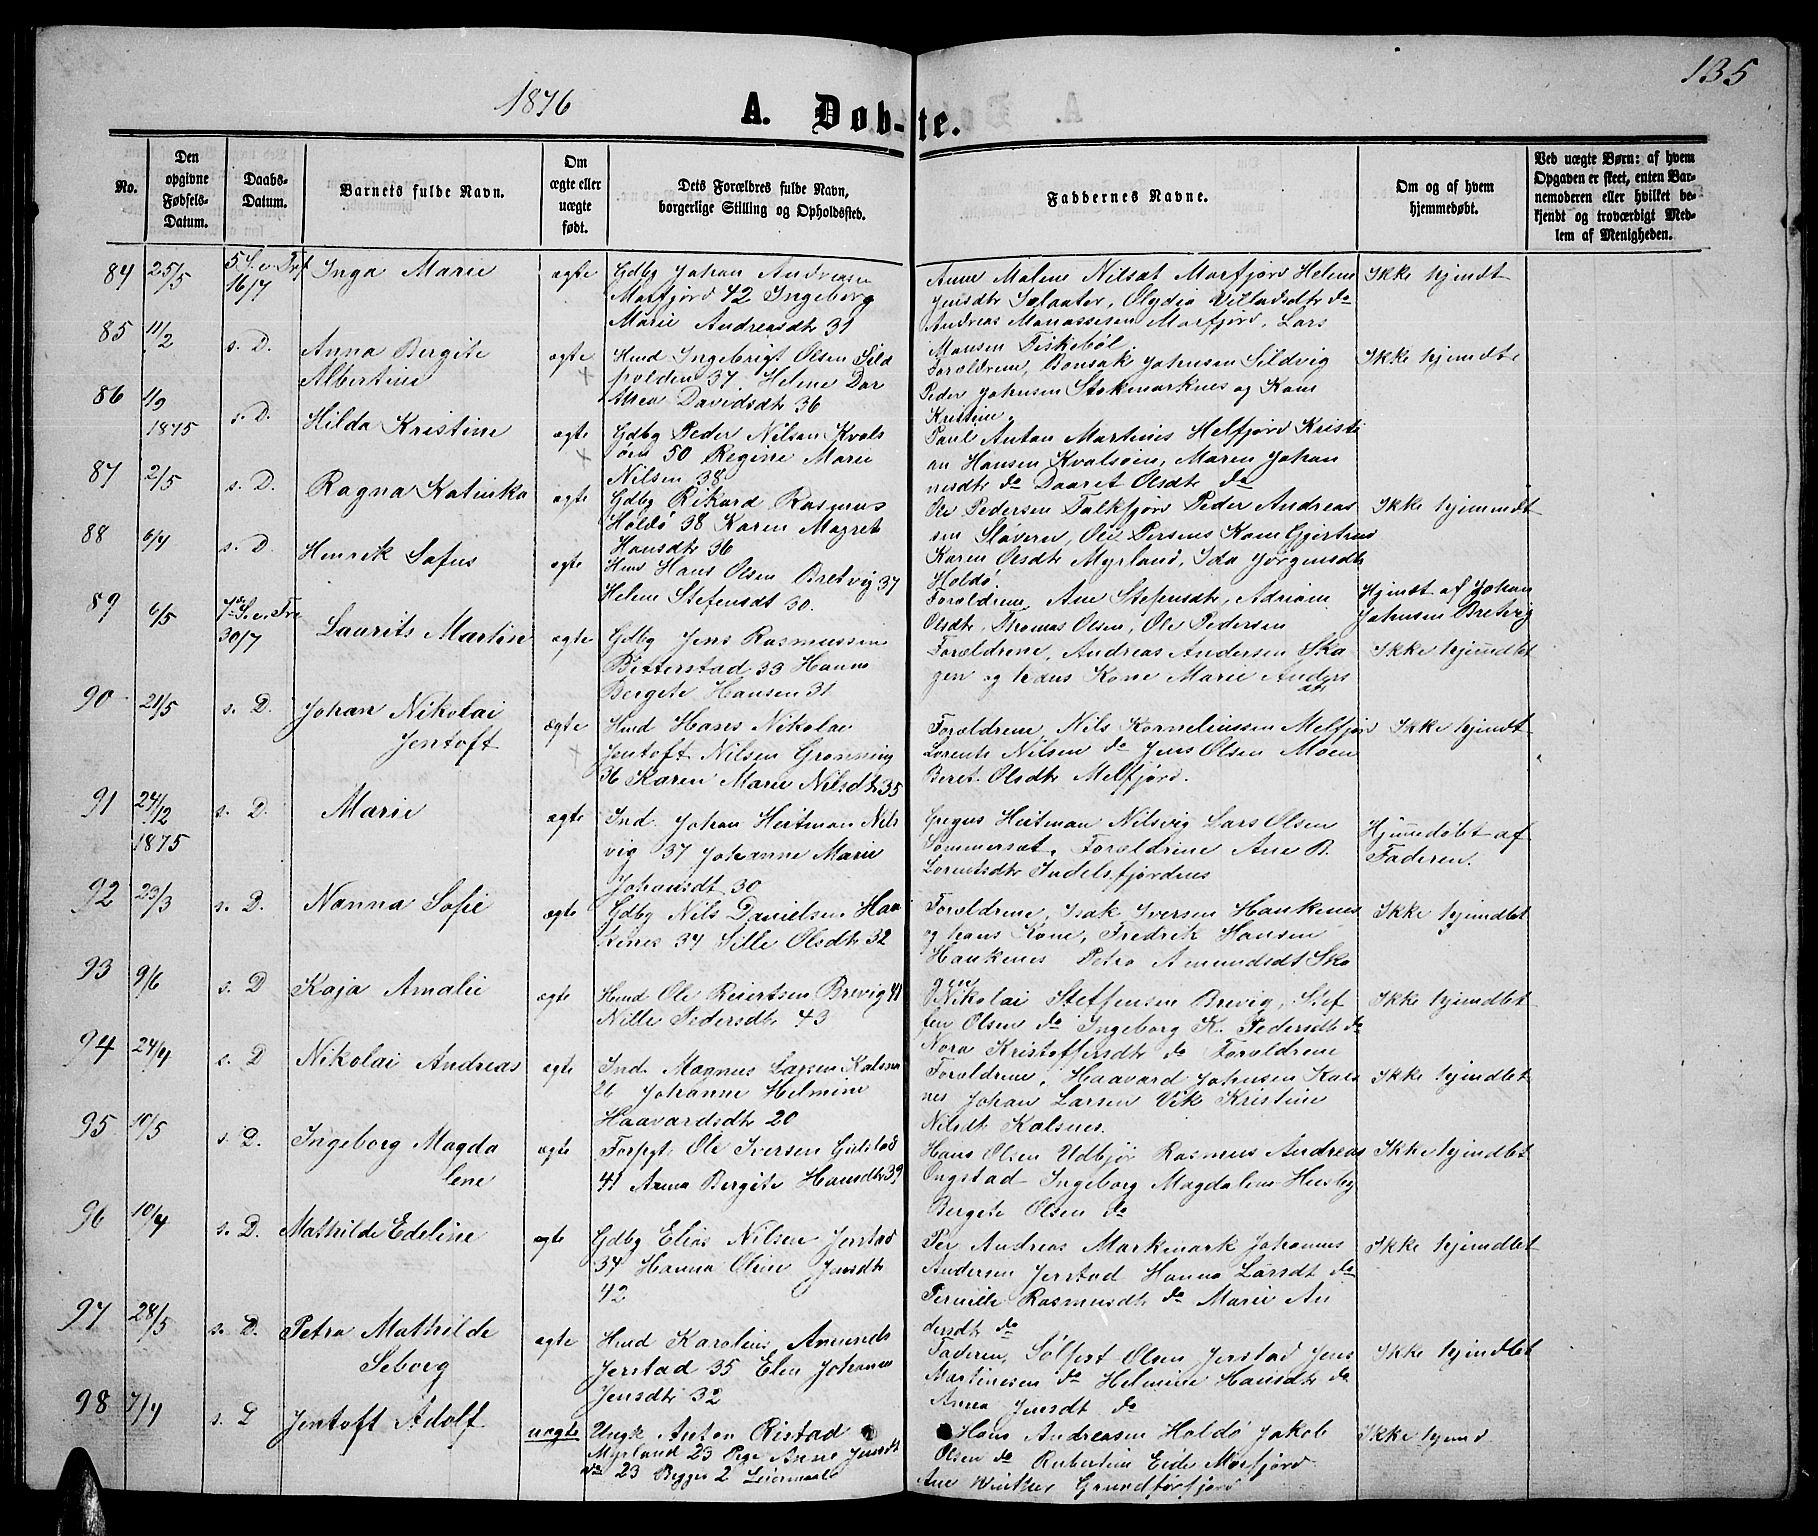 135
1876
A. Døb-te.
No.
Den opgivne Fødsels-Datum.
Daabs-Datum.
Barnets fulde Navn.
Om ægte eller uægte født.
Dets Forældres fulde Navn, borgerlige Stilling og Opholdsted.
Faddernes Navne.
Om og af hvem hjemmedøbt.
Ved uægte Børn: af hvem Opgaven er skeet, enten Barnemoderen eller hvilket bekjendt og troværdigt Medlem af Menigheden.
84 25/5 16/7 Inga Marie ægte
Gdbg Johan Andreasen
Morfjord 42 Ingeborg
Marie Andreasdt 31
Anne Malene Nilsdt Morfjord Helene
Jensdtr Olydia Villadsdtr do
Andreas Manassesen Morfjord, Lars
Monsen Fiskebøl
Ikke hjemdt
85 11/2 s. D. Anna Bergite
Albertine ægte
Hmd Ingebrigt Olsen Sild
polden 37, Helene Dor
thea Davidsdt 36
Forældrene, Bonsak Johnsen Sildvig
Peder Johnsen Stokmarknes og Kone
Kristine
Ikke hjemdt
86 1875 s. D. Hilda Kristine ægte
Gdbg Peder Nilsen Kvals
øen 50 Regine Marie
Nilsen 38
Paul Anton Martines Helfjord Kristi
an Hansen Kvalsøen, Maren Johan
nesdtr do Daaret Olsdtr do
87 2/5 s. D. Ragna Katinka ægte
Gdbg Rikard Rasmus
Holdø 38 Karen Magret
Hansdtr 36
Ole Pedersen Falkfjord Peder Andreas
sen Sloveren, Ole Persens Kone Gjertrud
Karen Olsdtr Myrland, Ida Jørgensdtr
Holdø
Ikke hjemmdt
88 6/4 s. D. Henrik Sofus ægte
Hans Olsen Bretvig 37
Helene Stefensdt 30.
Forældrene, Ane Stefensdtr, Adriane
Olsdtr, Thomas Olsen, Ole Pedersen
Hjmdt af Johan
Johnsen Bretvig
89 6/5 30/7 Laurits Martin ægte
Gdbg Jens Rasmussen
Bitterstad 33 Hanna
Bergete Hansen 31
Forældrene, Andreas Andersen Ska
gen og hans Kone Marie Anders
dtr
Ikke hjemdt
90 21/5 s. D. Johan Nikolai
Jentoft ægte
Hmd Hans Nikolai
Jentoft Nilsen Grønning
36 Karen Marie Nilsdtr 35
Forældrene, Nils Korneliussen Melfjord
Lorents Nilsen do Jens Olsen Moen
Beret Olsdtr Melfjord.
Ikke hjemdt
91 24/12 1875 s. D. Marie ægte
Ind. Johan Heitman Nils
vig 37 Johanne Marie
Johansdt 30
Gregus Heitman Nilsvig Lars Olsen
Sommerset, Forældrene Ane B.
Lorentsdtr Indelsfjordnes
Hjemmedøbt af
Faderen.
92 23/3 s. D. Nanna Sofie ægte
Gdbg Nils Danielsen Hau
kenes 34 Sille Olsdtr 32
Forældrene, Isak Iversen Haukenes
og hans Kone, Fredrik Hansen
Haukenes Petra Amundsdt Ska
gen
Ikke hjemdbt
93 9/6 s. D Kaja Amalie ægte
Hmd Ole Reiertsen Brevig 41
Nille Pedersdtr 43
Nikolai Steffensen Brevig, Stef
fen Olsen do Ingeborg K. Pedersdtr do
Nora Kristoffersdtr do Forældrene
Ikke hjemdbt
94 24/4 s. D Nikolai Andreas ægte
Ind. Magnus Larsen Kalsnes
26 Johanne Helmine
Haavardsdtr 20
Forældrene, Haavard Johnsen Kals
nes Johan Larsen Vik Kristine
Nilsdt Kalsnes.
Ikke hjemdbt
95 10/5 s. D. Ingeborg Magda
lene ægte
Forpgt Ole Iversen Gulstad
41 Anna Bergite Hansdtr 39
Hans Olsen Udbjør Rasmus Andreas
Ongstad Ingeborg Magdalene Husby
Bergete Olsen do
Ikke hjemdbt
96 10/4 s. D. Mathilde Edeline ægte
Gdbg Elias Nilsen Jerstad
34 Hanna Oline Jensdtr
42
Per Andreas Markmark Johannes
Andersen Jerstad Hanna Larsdt do
Pernille Rasmusdtr do Marie An
dersdt do
Ikke hjemdbt
97 28/5 s. D. Petra Mathilde
Seborg ægte
Hmd Karolius Amunds
Jerstad 35 Elen Johanna
Jensdtr 32
Faderen, Sølfest Olsen Jerstad Jens
Martinesen do Helmine Hansdtr do
Anna Jensdt do
Ikke hjemdbt
98 7/4 s. D Jentoft Adolf uægte
Ungk Anton Ristad
Myrland 23 Pige Anne Jensdt
do 23 Begges 2 Leiermaal
Hans Andreasen Holdø Jakob
Olsen do Robertine Eide Morfjord
Ane Winther Grundførfjord
Ikke hjemd